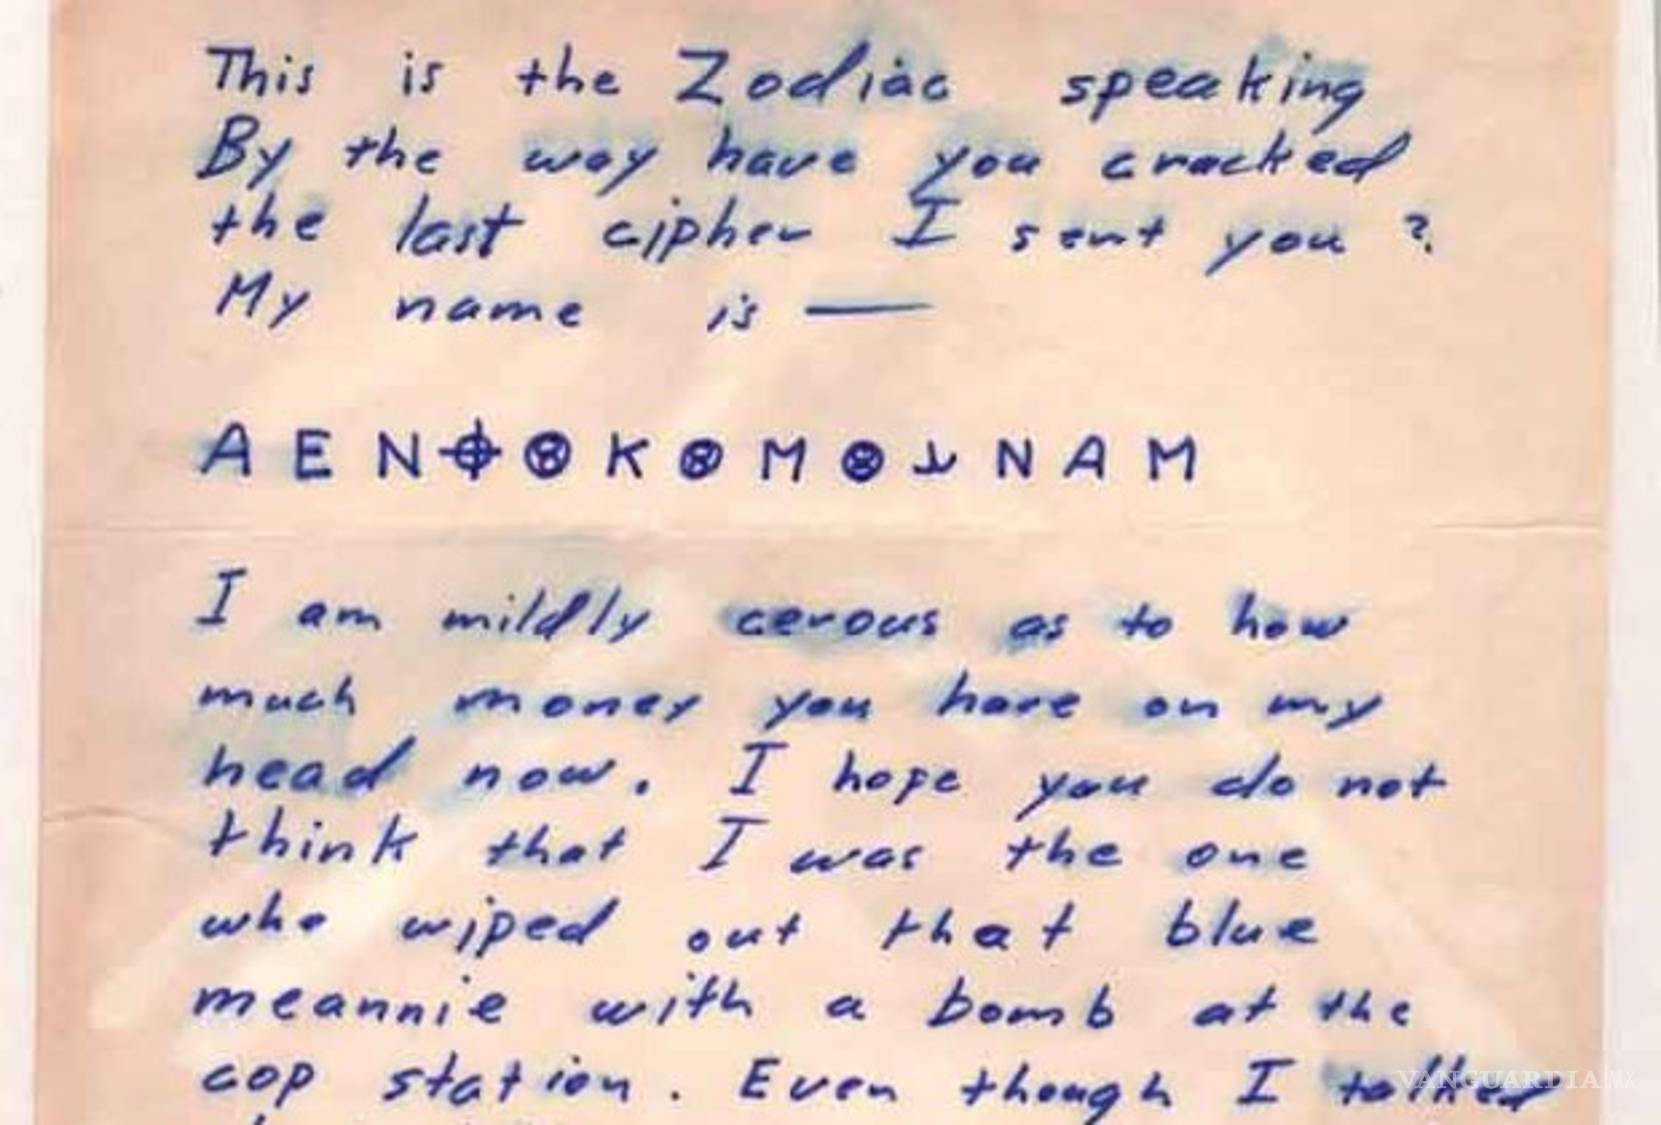 This is the Zodiac speaking
By the way have you cracked
the last cipher I sent you ?
My name is —
A E N ⌖ ⊗ K ⊗ M ⊗ ⅄ N A M
I am mildly cerous as to how
much money you have on my
head now. I hope you do not
think that I was the one
who wiped out that blue
meannie with a bomb at the
cop station. Even though I talked
VANGUARDIA MX